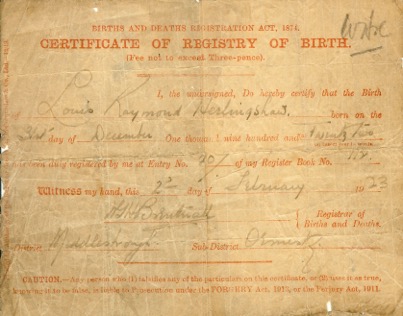 BIRTHS AND DEATHS REGISTRATION ACT, 1874.
CERTIFICATE OF REGISTRY OF BIRTH.
(Fee not to exceed Three-pence).
I, the undersigned, Do hereby certify that the Birth
of Louis Raymond born on the
31st day of December One thousand nine hundred and Twenty Two
has been duly registered by me at Entry No. of my Register Book No.
Witness my hand, this 2nd day of February 1923
Registrar of
Births and Deaths.
District Middlesbrough Sub-District Ormesby
CAUTION.—Any person who (1) falsifies any of the particulars on this certificate, or (2) uses it as true,
knowing it to be false, is liable to Prosecution under the FORGERY Act, 1913, or the Perjury Act, 1911.